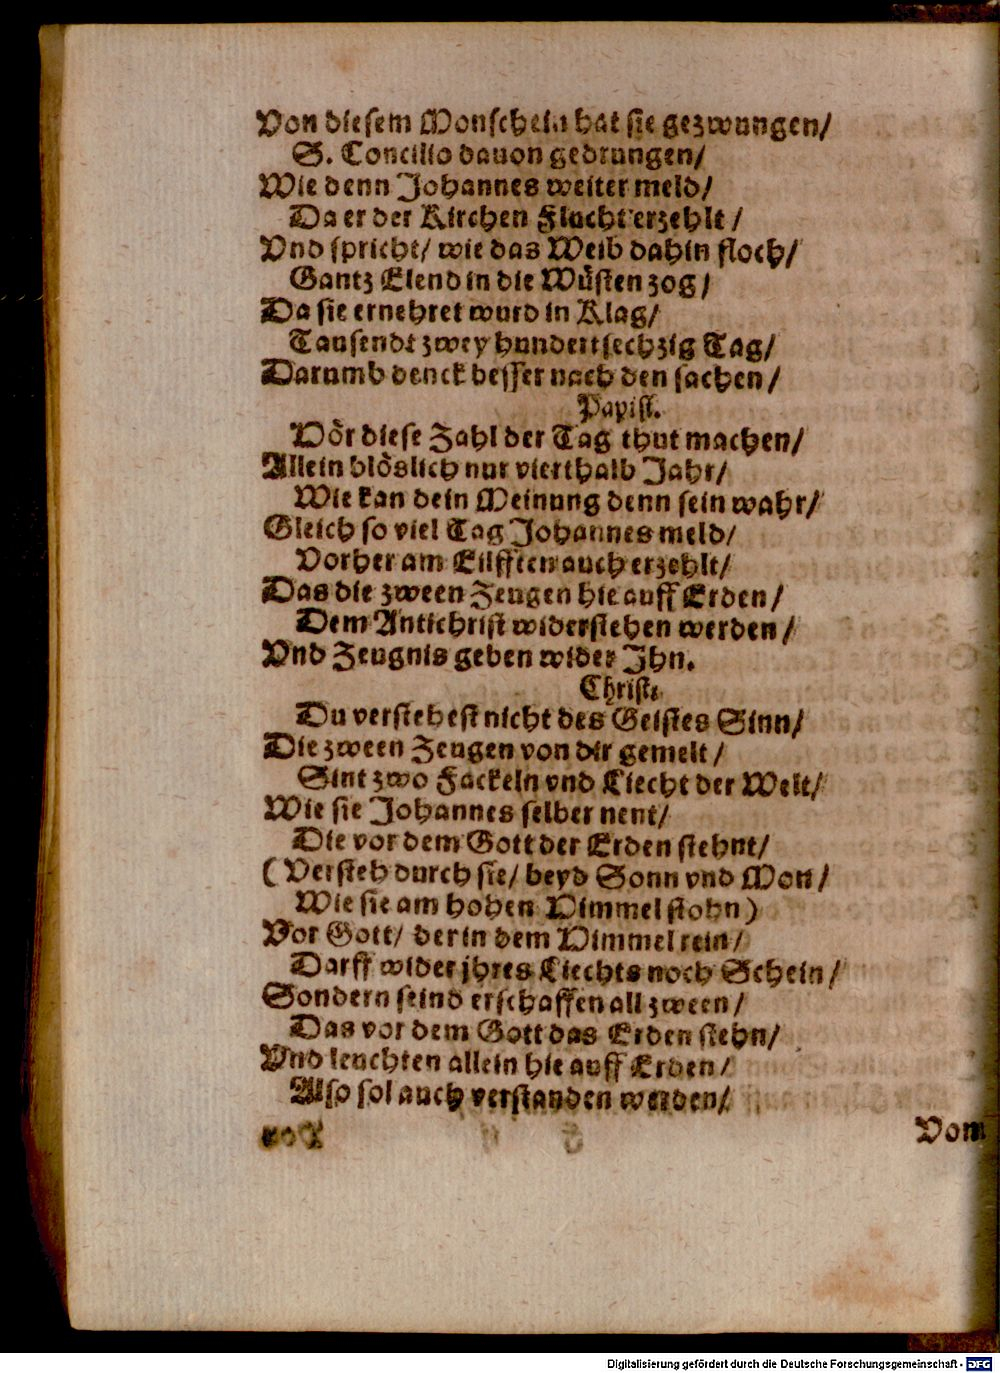 Von diesem Monschein hat sie gezwungen/
S. Concilio dauon gedrungen/
Wie denn Johannes weiter meld/
Da er der Kirchen Flucht erzehlt/
Vnd spricht/ wie das Weib dahin floch/
Gantz Elend in die Wüsten zog/
Da sie ernehret wurd in Klag/
Tausendt zwey hundert sechzig Tag/
Darumb denck besser nach den sachen/
Papist.
Vör diese Zahl der Tag thut machen/
Allein blöslich nur vierthalb Jahr/
Wie kan dein Meinung denn sein wahr/
Gleich so viel Tag Johannes meld/
Vorher am Eilfften auch erzehlt/
Das die zween Zeugen hie auff Erden/
Dem Antichrist widerstehen werden/
Vnd Zeugnis geben wider Ihn.
Christ.
Du verstehest nicht des Geistes Sinn/
Die zween Zeugen von dir gemelt/
Sint zwo Fackeln vnd Liecht der Welt/
Wie sie Johannes selber nent/
Die vor dem Gott der Erden stehnt/
(Versteh durch sie/ beyd Sonn vnd Mon/
Wie sie am hohen Himmel stohn)
Vor Gott/ der in dem Himmel rein/
Darff wider jhres Liechts noch Schein/
Sondern seind erschaffen all zween/
Das vor dem Gott das Erden stehn/
Vnd leuchten allein hie auff Erden/
Also sol auch verstanden werden/
Vom
Digitalisierung gefördert durch die Deutsche Forschungsgemeinschaft - DFG